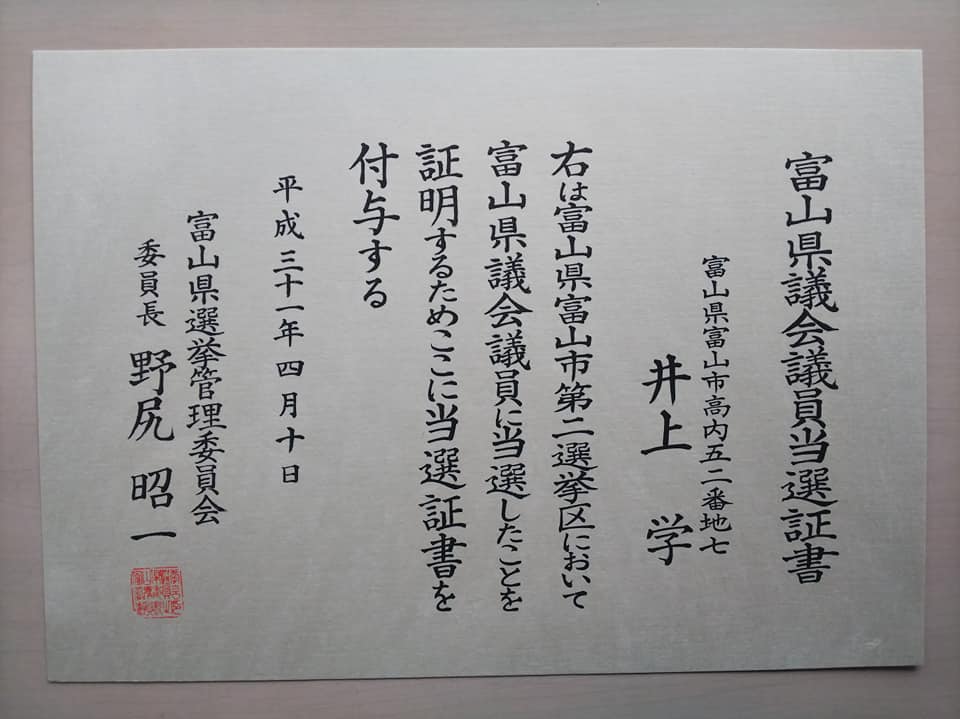 富山県議会議員当選証書
富山県富山市高内五二番地七
井上 学
右は富山県富山市第二選挙区において
富山県議会議員に当選したことを
証明するためここに当選証書を
付与する
平成三十一年四月十日
富山県選挙管理委員会
委員長 野尻 昭一